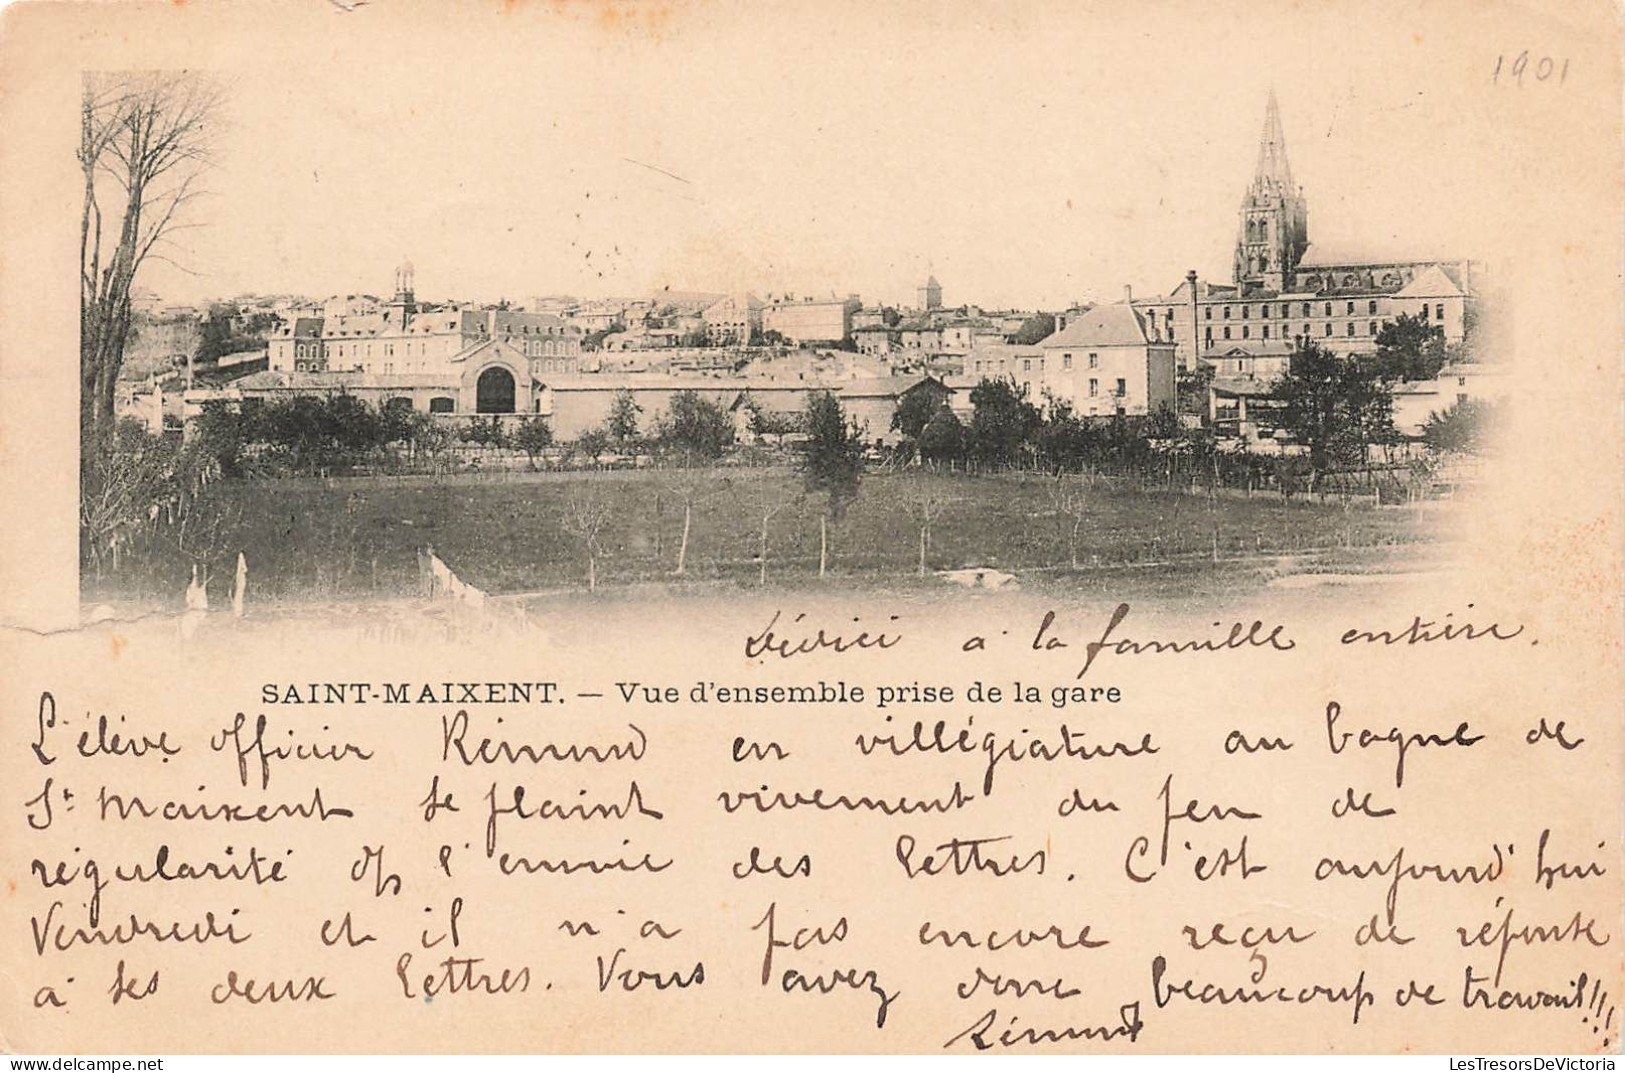 1901
Dédiée à la famille entière.
SAINT-MAIXENT. — Vue d'ensemble prise de la gare
L'élève officier Rémund en villégiature au bagne de
St Maixent se plaint vivement du peu de
régularité ds l'envoie des lettres. C'est aujourd'hui
Vendredi et il n'a pas encore reçu de réponse
à ses deux lettres. Vous avez donc beaucoup de travail!!!
Rémund
LesTresorsDeVictoria